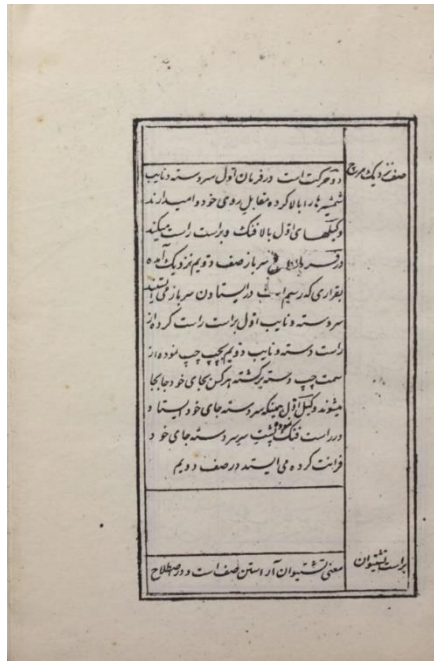 صف نزدیک مرج
دو حرکت است در فرمان اول سردسته و نایب
شمشیرها را بالا کرده مقابل روی خود وامیدارند
وکیلهای اول بالا فنک و براست راست میکند
در سرباز صف دویم نزدیک آمده
بقراری که رسم است در ایستادن سرباز می ایستند
سردسته و نایب اول براست راست کرده از
راست دسته و نایب دویم بچپ چپ نموده از
سمت چپ دسته برکشته هرکس بجای خود جابجا
میشوند وکیل اول همینکه سردسته جای خود ایستاد
در راست فنک نموده پشت سر سردسته جای خود
قرائت کرده می ایستد در صف دویم
براست تشتیوان
معنی تشتیوان آراستن صف است و در اصطلاح